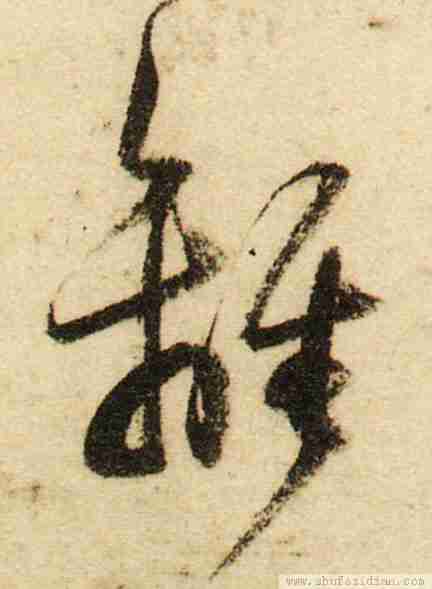 離
www.shufazidian.com